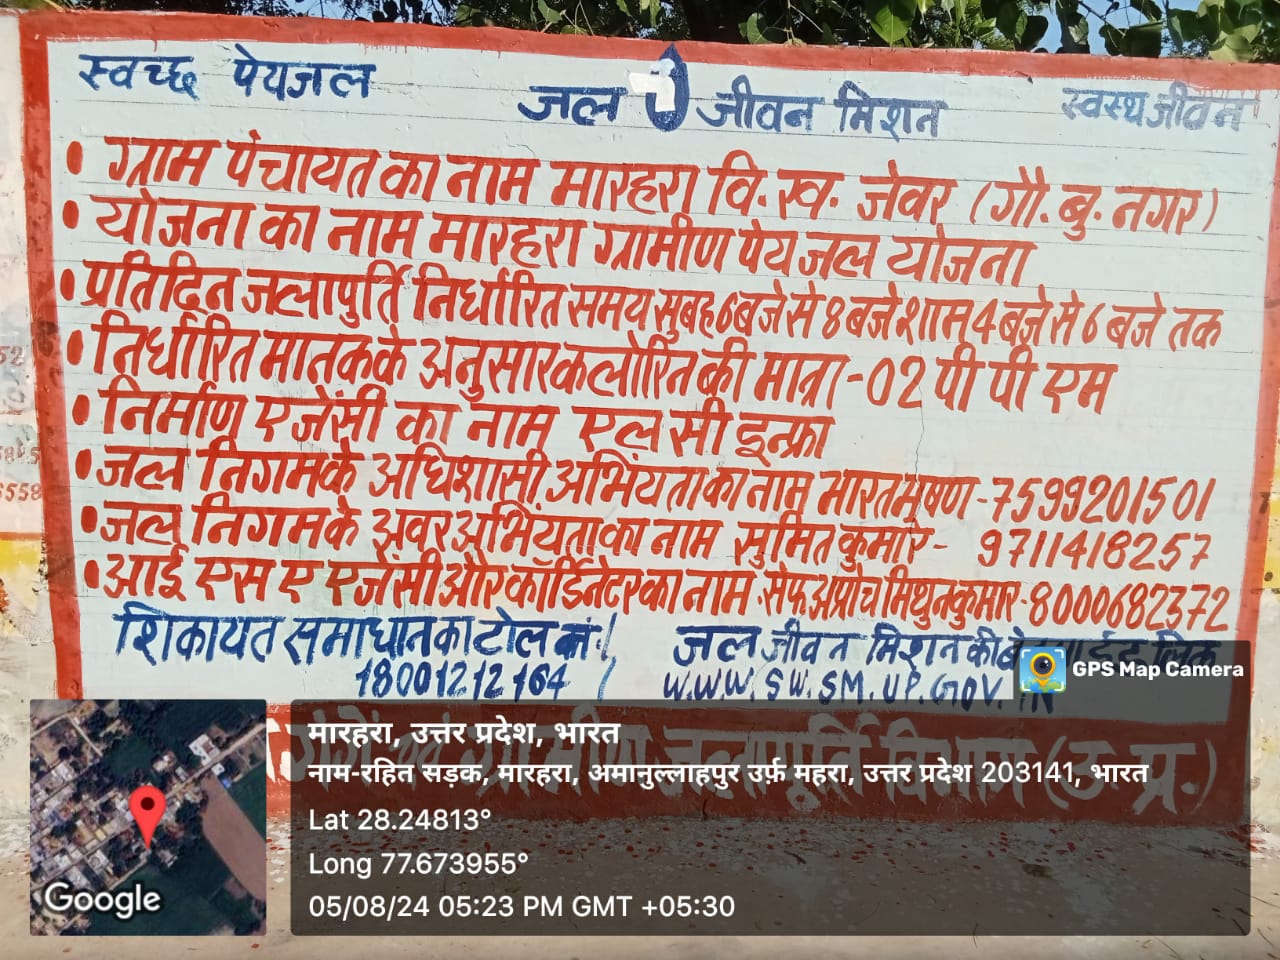 स्वच्छ पेयजल जल जीवन मिशन स्वस्थ जीवन
• ग्राम पंचायत का नाम मारहरा वि. ख. जेवर (गौ. बु. नगर)
• योजना का नाम मारहरा ग्रामीण पेय जल योजना
• प्रतिदिन जलापुर्ति निर्धारित समय सुबह 6 बजे से 8 बजे शाम 4 बजे से 6 बजे तक
• निर्धारित मानक के अनुसार कलोरित की मात्रा - 02 पी पी एम
• निर्माण एजेंसी का नाम एल सी इन्फ्रा
• जल निगम के अधिशासी अभियंता का नाम भारत भूषण - 7599201501
• जल निगम के अवर अभियंता का नाम सुमित कुमार - 9711418257
• आई एस ए एजेंसी और कॉर्डिनेटर का नाम सेफ अप्रोच मिथुन कुमार - 8000682372
शिकायत समाधान का टोल नं.
18001212164
जल जीवन मिशन की लिंक
W.W.W. SW. SM. UP. GOV. IN
ग्रामीण जलापूर्ति विभाग (उ. प्र.)
GPS Map Camera
मारहरा, उत्तर प्रदेश, भारत
नाम-रहित सड़क, मारहरा, अमानुल्लाहपुर उर्फ़ महरा, उत्तर प्रदेश 203141, भारत
Lat 28.24813°
Long 77.673955°
05/08/24 05:23 PM GMT +05:30
Google